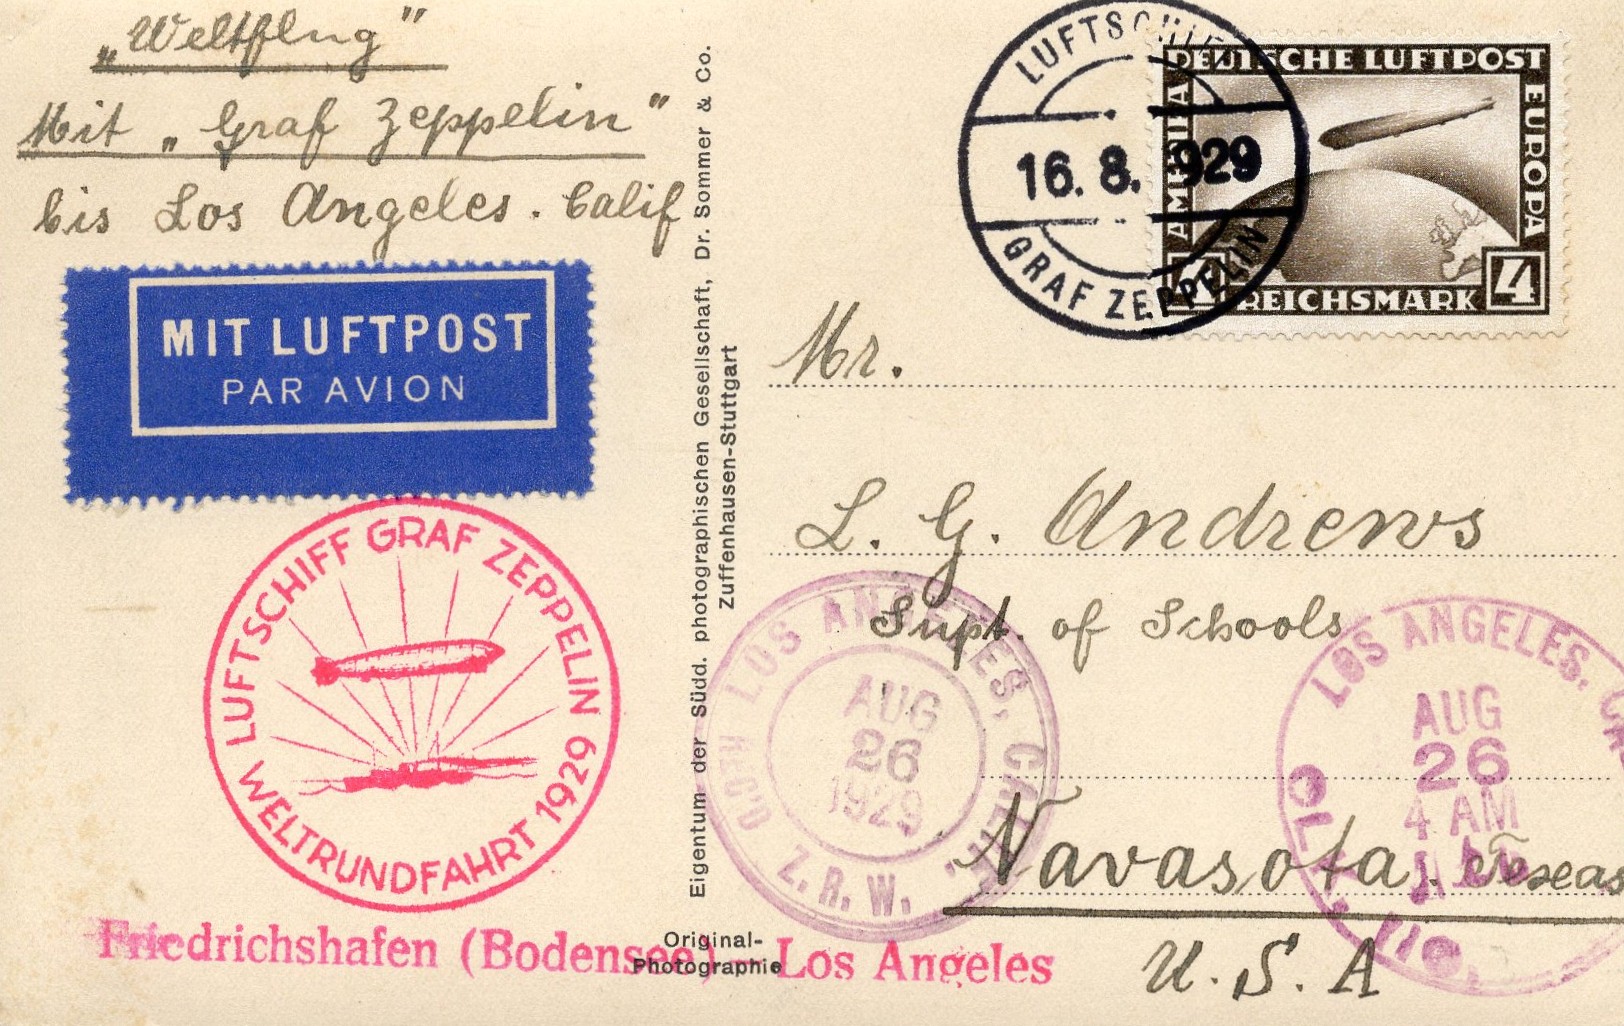 „Weltflug"
Mit „Graf Zeppelin"
bis Los Angeles. Calif
MIT LUFTPOST
PAR AVION
LUFTSCHIFF GRAF ZEPPELIN
WELTRUNDFAHRT 1929
Friedrichshafen (Bodensee) — Los Angeles
Eigentum der Südd. photographischen Gesellschaft, Dr. Sommer & Co.
Zuffenhausen-Stuttgart
Original-
Photographie
LUFTSCHIFF
16. 8. 1929
GRAF ZEPPELIN
DEUTSCHE LUFTPOST
EUROPA
AMERIKA
4 REICHSMARK 4
Mr.
L. G. Andrews
Supt. of Schools
Navasota. Texas
U. S. A
LOS ANGELES, CALIF.
AUG
26
1929
REC'D
Z.R.W.
LOS ANGELES,
AUG
26
4 AM